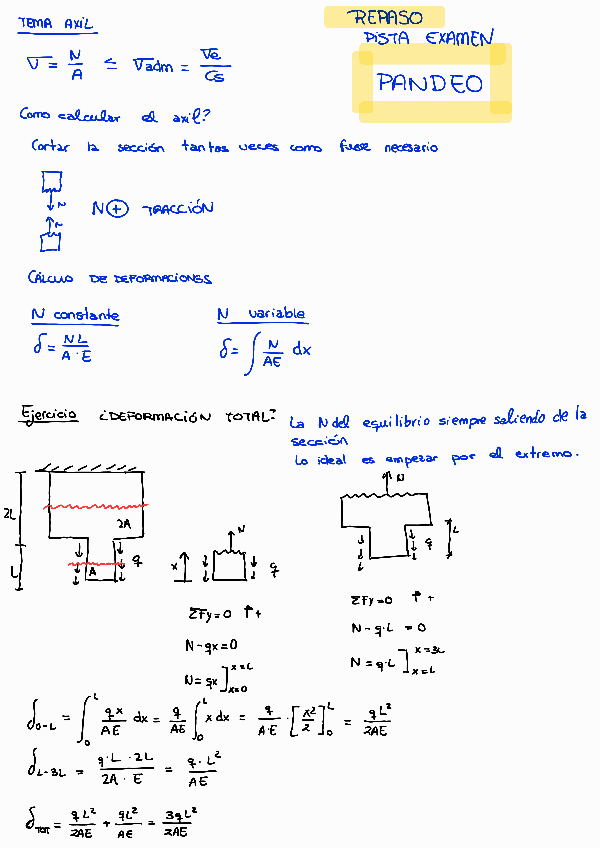 TEMA AXIL
REPASO
PISTA EXAMEN
PANDEO
σ = N/A ≤ σadm = σe/Cs
Como calcular el axil?
Cortar la sección tantas veces como fuese necesario
N
N
N ⊕ TRACCIÓN
CÁLCULO DE DEFORMACIONES
N constante
N variable
δ = NL/A·E
δ = ∫ N/AE dx
Ejercicio ¿DEFORMACIÓN TOTAL?
La N del equilibrio siempre saliendo de la
sección
Lo ideal es empezar por el extremo.
2L
2A
L
A
q
N
x
q
N
q
L
ΣFy=0 ↑+
N-qx=0
N= qx ]x=L x=0
ΣFy=0 ↑+
N-q·L =0
N = q·L ]x=3L x=L
δ0-L = ∫0L qx/AE dx = q/AE ∫0L x dx = q/A·E · [x²/2]0L = qL²/2AE
δL-3L = q·L·2L/2A·E = q·L²/AE
δTOT = qL²/2AE + qL²/AE = 3qL²/2AE